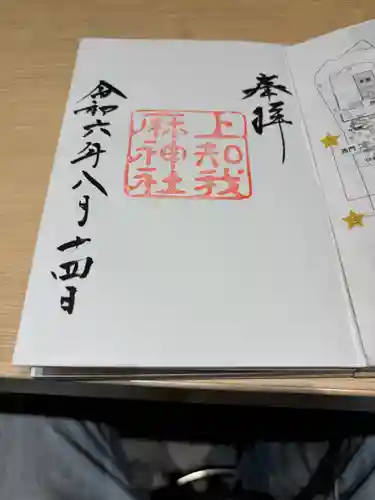 奉拝
上知我
麻神社
令和六年八月十四日